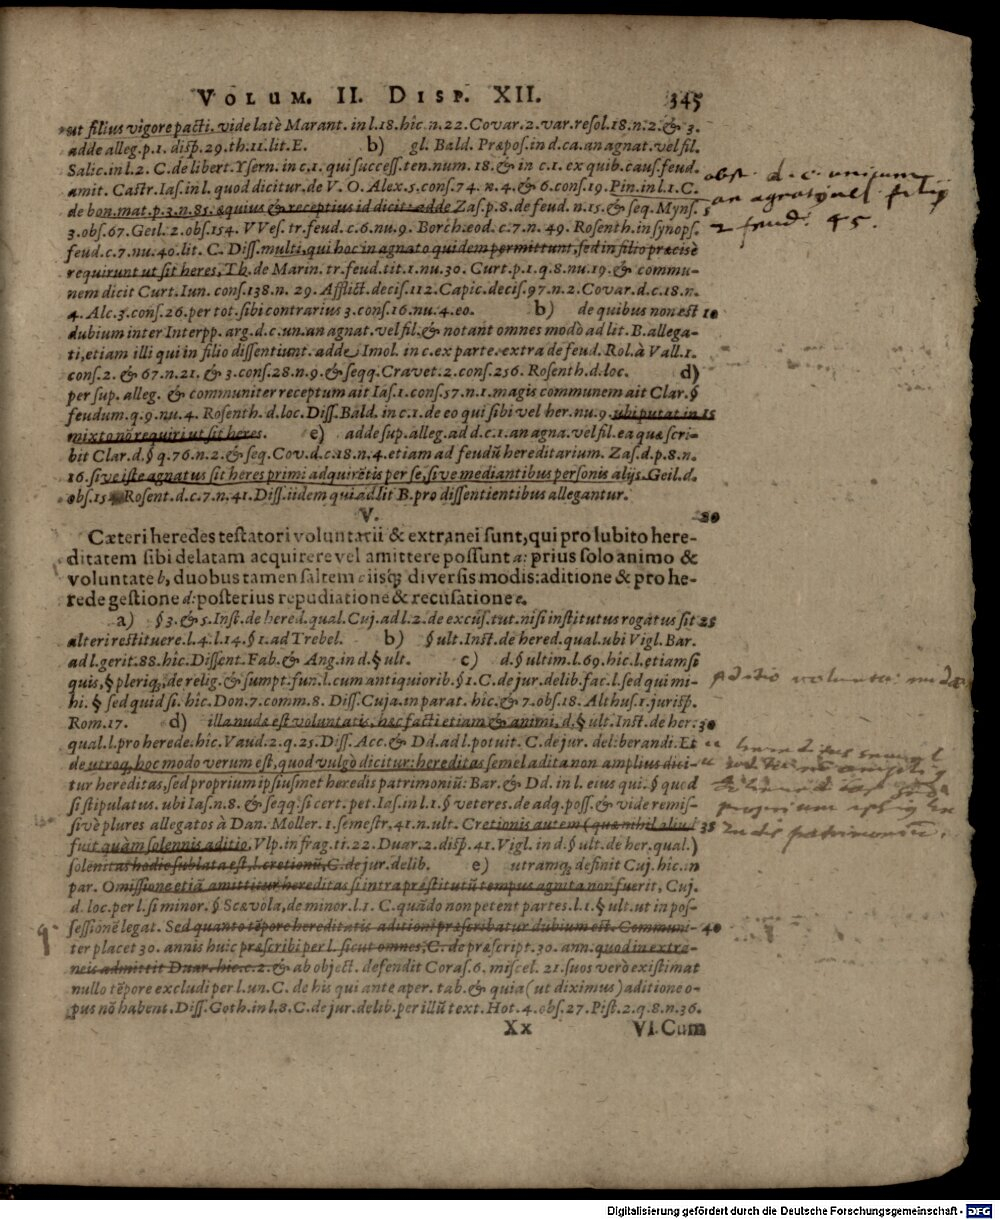 VOLUM. II. DISP. XII. 345
ut filius vigore pacti. vide latè Marant. in l.18. hîc n.22. Covar. 2. var. resol. 18. n.2. & 3.
adde alleg. p.1. disp. 29. th. 11. lit. E. b) gl. Bald. Præpos. in d. ca. an agnat. vel fil.
Salic. in l. 2. C. de libert. Ysern. in c. 1. qui success. ten. num. 18. & in c. 1. ex quib. caus. feud.
amit. Castr. Ias. in l. quod dicitur. de V. O. Alex. 5. cons. 74. n. 4. & 6. cons. 19. Pin. in l. 1. C.
de bon. mat. p. 3. n. 85. æquius & receptius id dicit: adde Zas. p. 8. de feud. n. 15. & seq. Myns. 5
3. obs. 67. Geil. 2. obs. 154. VVes. tr. feud. c. 6. nu. 9. Borch. eod. c. 7. n. 49. Rosenth. in synops.
feud. c. 7. nu. 40. lit. C. Diss. multi, qui hoc in agnato quidem permittunt, sed in filio præcisè
requirunt ut sit heres, Th. de Marin. tr. feud. tit. 1. nu. 30. Curt. p. 1. q. 8. nu. 19. & commu-
nem dicit Curt. Iun. cons. 138. n. 29. Afflict. decis. 112. Capic. decis. 97. n. 2. Covar. d. c. 18. n.
4. Alc. 3. cons. 26. per tot. sibi contrarius 3. cons. 16. nu. 4. eo. b) de quibus non est 10
dubium inter Interpp. arg. d. c. un. an agnat. vel fil. & notant omnes modò ad lit. B. allega-
ti, etiam illi qui in filio dissentiunt. adde Imol. in c. ex parte. extra de feud. Rol. à Vall. 1.
cons. 2. & 67. n. 21. & 3. cons. 28. n. 9. & seqq. Cravet. 2. cons. 256. Rosenth. d. loc. d)
per sup. alleg. & communiter receptum ait Ias. 1. cons. 57. n. 1. magis communem ait Clar. §
feudum. q. 9. nu. 4. Rosenth. d. loc. Diss. Bald. in c. 1. de eo qui sibi vel her. nu. 9. ubi putat in 15
mixto nō requiri ut sit heres. e) adde sup. alleg. ad d. c. 1. an agna. vel fil. ea quæ scri-
bit Clar. d. § q. 76. n. 2. & seq. Cov. d. c. 18. n. 4. etiam ad feudū hereditarium. Zas. d. p. 8. n.
16. sive iste agnatus sit heres primi adquirētis per se, sive mediantibus personis alijs. Geil. d.
obs. 154. Rosent. d. c. 7. n. 41. Diss. iidem qui ad lit B. pro dissentientibus allegantur.
V. 20
Cæteri heredes testatori voluntarii & extranei sunt, qui pro lubito here-
ditatem sibi delatam acquirere vel amittere possunt a: prius solo animo &
voluntate b, duobus tamen saltem c iisq; diversis modis: aditione & pro he-
rede gestione d: posterius repudiatione & recusatione e.
a) § 3. & 5. Inst. de hered. qual. Cuj. ad l. 2. de excus. tut. nisi institutus rogatus sit 25
alteri restituere. l. 4. l. 14. § 1. ad Trebel. b) § ult. Inst. de hered. qual. ubi Vigl. Bar.
ad l. gerit. 88. hîc. Dissent. Fab. & Ang. in d. § ult. c) d. § ultim. l. 69. hîc. l. etiamsi
quis, § pleriq, de relig. & sumpt. fun. l. cum antiquiorib. § 1. C. de jur. delib. fac. l. sed qui mi-
hi. § sed quid si. hîc. Don. 7. comm. 8. Diss. Cuja. in parat. hîc. & 7. obs. 18. Althus. 1. jurisp.
Rom. 17. d) illa nuda est voluntatis, hæc facti etiam & animi, d. § ult. Inst. de her: 30
qual. l. pro herede. hîc. Vaud. 2. q. 25. Diss. Acc. & Dd. ad l. potuit. C. de jur. deliberandi. Et
de utroq, hoc modo verum est, quod vulgò dicitur: hereditas semel adita non amplius dici-
tur hereditas, sed proprium ipsiusmet heredis patrimoniū: Bar. & Dd. in l. eius qui. § quod
si stipulatus. ubi Ias. n. 8. & seqq. si cert. pet. Ias. in l. 1. § veteres. de adq. poss. & vide remis-
sivè plures allegatos à Dan. Moller. 1. semestr. 41. n. ult. Cretionis autem (quæ nihil aliud 35
fuit quàm solennis aditio, Vlp. in frag. ti. 22. Duar. 2. disp. 41. Vigl. in d. § ult. de her. qual.)
solenitas hodie sublata est, l. cretionū, C. de jur. delib. e) utramq; definit Cuj. hîc. in
par. Omissione etiā amittitur hereditas si intra præstitutū tempus agnita non fuerit, Cuj.
d. loc. per l. si minor. § Scævola, de minor. l. 1. C. quādo non petent partes. l. 1. § ult. ut in pos-
sessionē legat. Sed quanto tēpore hereditatis aditioni præscribatur dubium est. Communi- 40
ter placet 30. annis huic præscribi per l. sicut omnes, C. de præscript. 30. ann. quod in extra-
neis admittit Duar. hîc. c. 2. & ab object. defendit Coras. 6. miscel. 21. suos verò existimat
nullo tēpore excludi per l. un. C. de his qui ante aper. tab. & quia (ut diximus) aditione o-
pus nō habent. Diss. Goth. in l. 8. C. de jur. delib. per illū text. Hot. 4. obs. 27. Pist. 2. q. 8. n. 36.
Xx VI. Cum
obst. d. c. unicum
an agnatus vel filij
2 feud. 45.
aditio voluntas nuda
hereditas semel
proprium ipsius he
redis patrimonium.
Digitalisierung gefördert durch die Deutsche Forschungsgemeinschaft - DFG